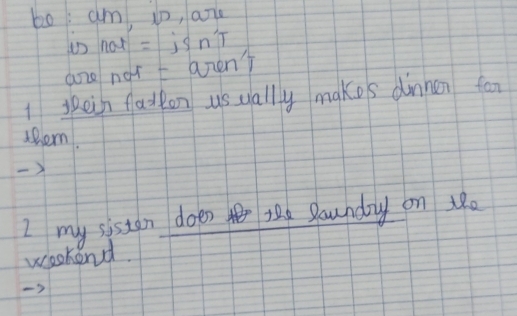 be : am, is, are
is not = isn't
are not = aren't
1 their father usually makes dinner for
them.
->
2 my sister does the laundry on the
weekend.
->